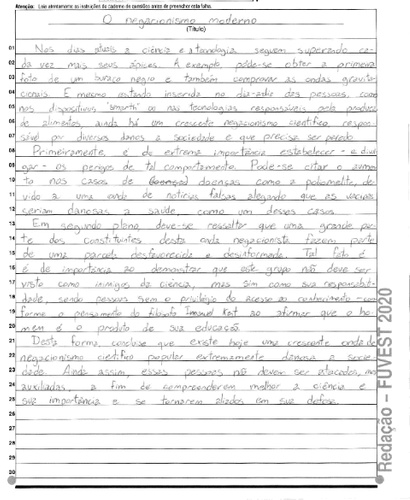 Atenção: Leia atentamente as instruções do caderno de questões antes de preencher esta folha.
O negacionismo moderno
(Título)
01 Nos dias atuais a ciência e a tecnologia seguem superando ca-
02 da vez mais seus ápices. A exemplo, pôde-se obter a primeira
03 foto de um buraco negro e também comprovar as ondas gravita-
04 cionais. E mesmo estando inserida no dia-a-dia das pessoas, como
05 nos dispositivos "smarth" ou nas tecnologias responsáveis pela produção
06 de alimentos ainda há um crescente negacionismo científico respon-
07 sável por diversos danos a sociedade e que precisa ser
08 Primeiramente, é de extrema importância estabelecer - e divul-
09 gar - os perigos de tal comportamento. Pode-se citar o aumen-
10 to nos casos de doenças como a poliomelite, de-
11 vido a uma onda de notícias falsas alegando que as vacinas
12 seriam danosas a saúde, como um desses casos.
13 Em segundo plano, deve-se ressaltar que uma grande par-
14 te dos constituintes desta onda negacionista fazem parte
15 de uma parcela desfavorecida e desinformada. Tal fato é
16 é de importância ao demonstrar que este grupo não deve ser
17 visto como inimigos da ciência, mas sim como sua responsabili-
18 dade, sendo pessoas sem o privilégio do acesso ao conhecimento - con-
19 forme o pensamento do filósofo Imanuel Kant ao afirmar que o ho-
20 mem é o produto de sua educação.
21 Desta forma, conclui-se que existe hoje uma crescente onda de
22 negacionismo científico popular extremamente danosa a socie-
23 dade. Ainda assim, essas pessoas não devem ser atacadas, mas
24 auxiliadas, a fim de compreenderem melhor a ciência e
25 sua importância e se tornarem aliados em sua defesa.
26
27
28
29
30
Redação – FUVEST 2020